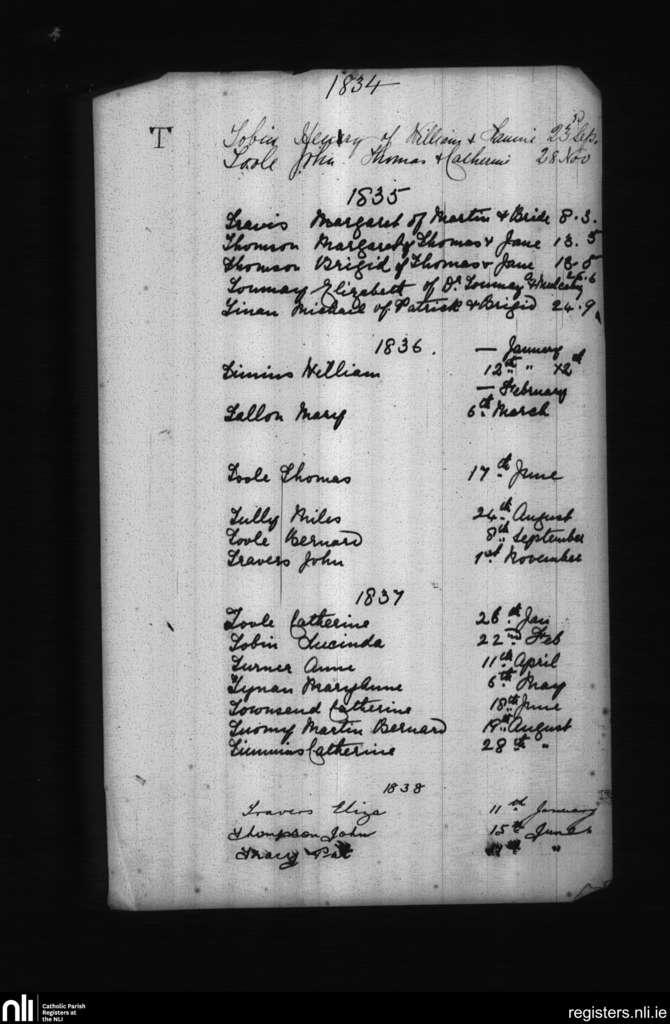 1834
T
Tobin Henry of William & Fannie 23 Sep.
Toole John Thomas & Catherine 28 Nov
1835
Travis Margaret of Martin & Bride 8.3.
Thomson Margaret of Thomas & Jane 13.5
Thomson Brigid of Thomas & Jane 13.5
Toumay Elizabeth of Dr. Toumay & 26.6
Tinan Michael of Patrick & Brigid 24.9
1836.
— January
Timins William 12th " x2d
— February
Tallon Mary 6th March
Toole Thomas 17th June
Tully Miles 24th August
Toole Bernard 8th September
Travers John 1st November
1837
Toole Catherine 26th Jan
Tobin Lucinda 22nd Feb
Turner Anne 11th April
Tynan MaryAnne 6th May
Townsend Catherine 18th June
Tuomy Martin Bernard 19th August
Timmins Catherine 28th "
1838
Travers Eliza 11th January
Thompson John 15th June
Tracy Pat "
nli
Catholic Parish
Registers at
the NLI
registers.nli.ie